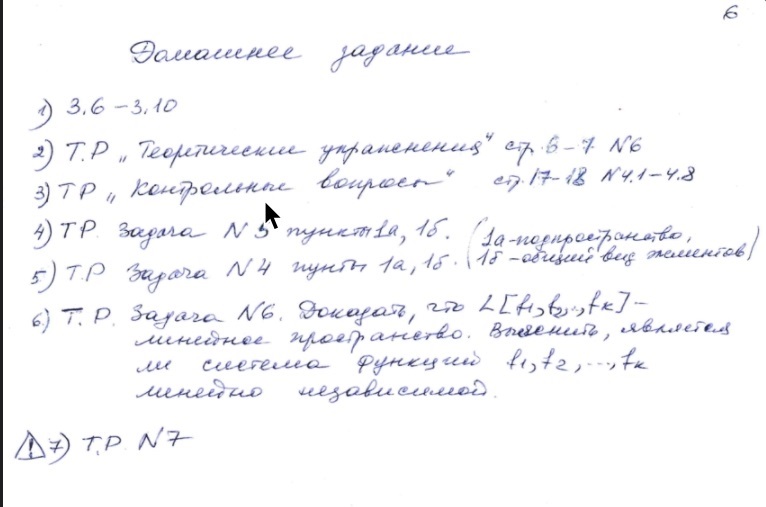 6
Домашнее задание
1) 3.6 – 3.10
2) Т.Р „Теоретические упражнения" стр. 6 – 7 N6
3) ТР „Контрольные вопросы" стр. 17-18 N4.1 – 4.8
4) ТР. Задача N 3 пункты 1а, 1б. (1а-подпространство,
5) Т.Р Задача N4 пункты 1а, 1б. 1б-общий вид элементов)
6) Т. Р. Задача N6. Доказать, что L[f₁, f₂,..., fк] –
линейное пространство. Выяснить, является
ли система функций f₁, f₂, ..., fк
линейно независимой.
⚠ 7) Т.Р. N7